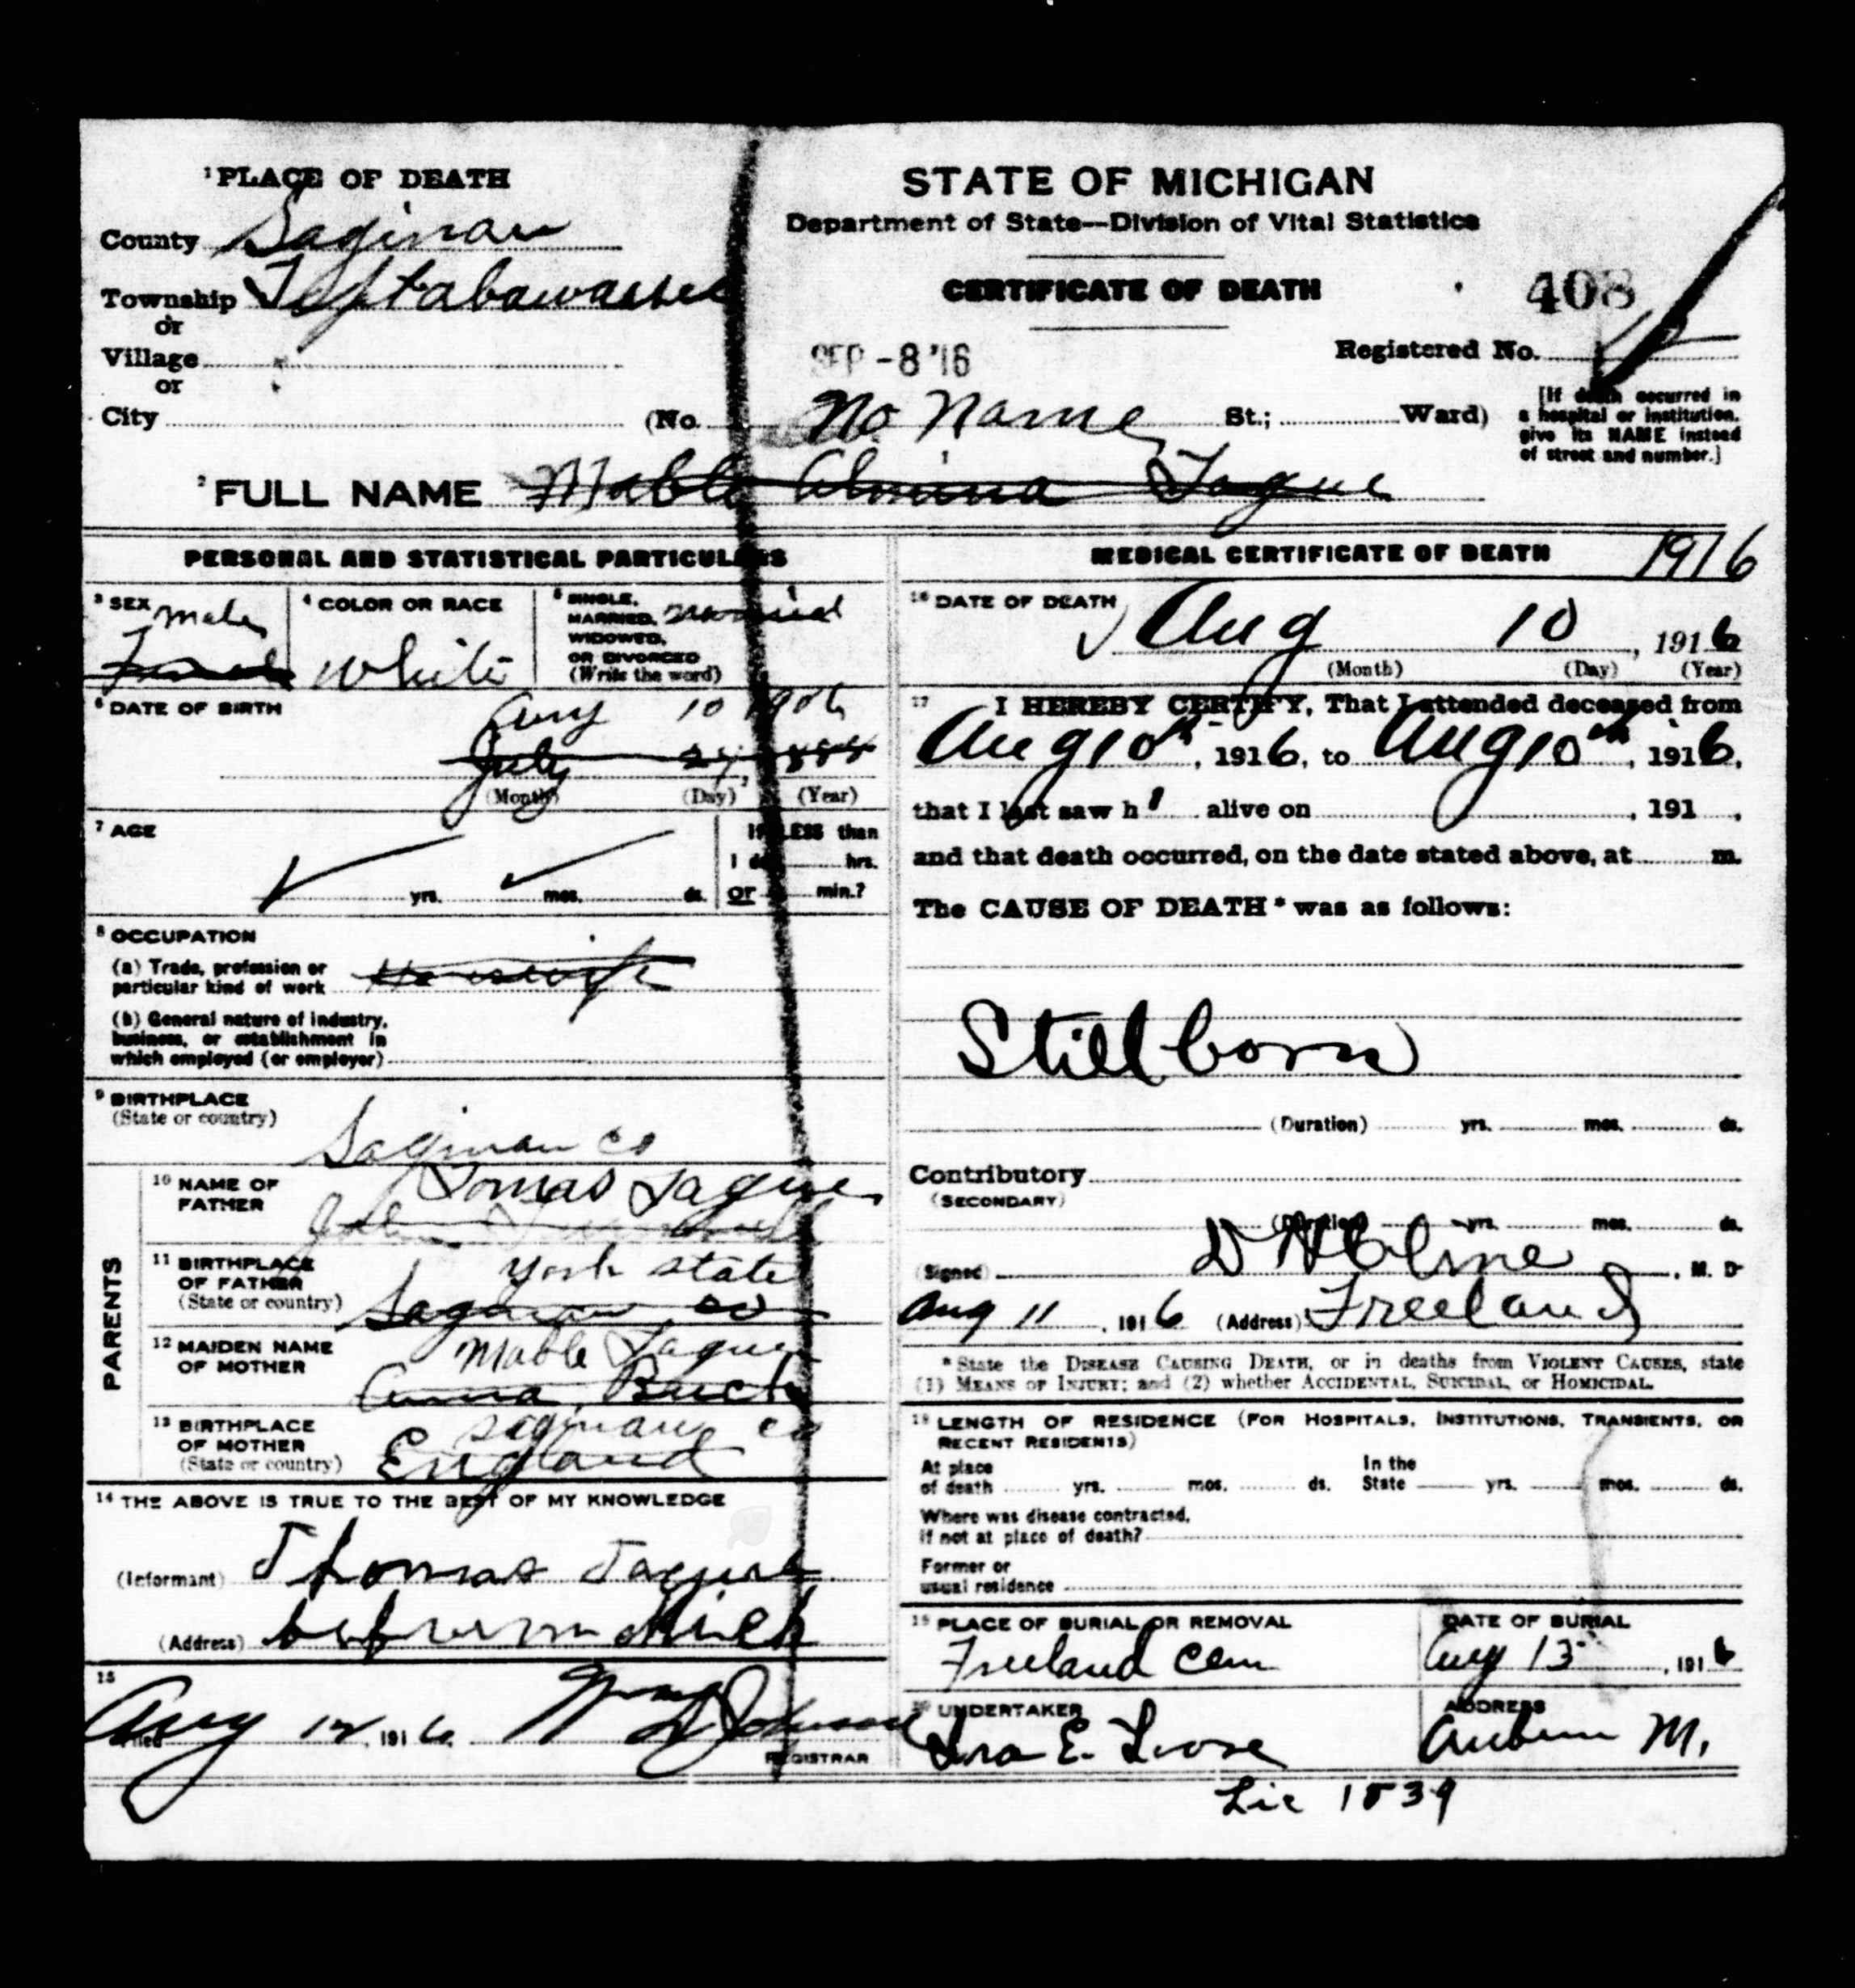 ¹PLACE OF DEATH
County Saginaw
Township Tittabawassee
or
Village
or
City
STATE OF MICHIGAN
Department of State—Division of Vital Statistics
CERTIFICATE OF DEATH
408
SEP -8 '16
Registered No.
(No. No Name St.; Ward)
[If death occurred in
a hospital or institution,
give its NAME instead
of street and number.]
²FULL NAME Mable Almina Tague
PERSONAL AND STATISTICAL PARTICULARS
³ SEX Male
Female
⁴ COLOR OR RACE
White
⁵ SINGLE,
MARRIED, married
WIDOWED,
OR DIVORCED
(Write the word)
⁶ DATE OF BIRTH
Aug 10 1906
July 27, 1888
(Month) (Day) (Year)
⁷ AGE
If LESS than
1 day hrs.
yrs. mos. ds. or min.?
⁸ OCCUPATION
(a) Trade, profession or
particular kind of work Housewife
(b) General nature of industry,
business, or establishment in
which employed (or employer)
⁹ BIRTHPLACE
(State or country)
Saginaw Co
PARENTS
¹⁰ NAME OF
FATHER
Tomas Tague
John
¹¹ BIRTHPLACE
OF FATHER
(State or country)
York state
Saginaw Co
¹² MAIDEN NAME
OF MOTHER
Mable Tague
Anna Buck
¹³ BIRTHPLACE
OF MOTHER
(State or country)
Saginaw Co
England
¹⁴ THE ABOVE IS TRUE TO THE BEST OF MY KNOWLEDGE
(Informant) Thomas Tague
(Address) Mich
15
Filed Aug 12, 1916
REGISTRAR
MEDICAL CERTIFICATE OF DEATH 1916
¹⁶ DATE OF DEATH
Aug 10, 1916
(Month) (Day) (Year)
17 I HEREBY CERTIFY, That I attended deceased from
Aug 10th, 1916, to Aug 10th, 1916,
that I last saw h alive on , 191 ,
and that death occurred, on the date stated above, at m.
The CAUSE OF DEATH* was as follows:
Stillborn
(Duration) yrs. mos. ds.
Contributory
(SECONDARY)
(Duration) yrs. mos. ds.
(Signed) , M. D
Aug 11, 1916 (Address) Freeland
*State the DISEASE CAUSING DEATH, or in deaths from VIOLENT CAUSES, state
(1) MEANS OF INJURY; and (2) whether ACCIDENTAL, SUICIDAL, or HOMICIDAL.
¹⁸ LENGTH OF RESIDENCE (FOR HOSPITALS, INSTITUTIONS, TRANSIENTS, OR
RECENT RESIDENTS)
At place
of death yrs. mos. ds.
In the
State yrs. mos. ds.
Where was disease contracted,
if not at place of death?
Former or
usual residence
¹⁹ PLACE OF BURIAL OR REMOVAL
Freeland Cem
DATE OF BURIAL
Aug 13, 1916
²⁰ UNDERTAKER
Ira E. Loose
ADDRESS
Auburn M.
Lic 1839